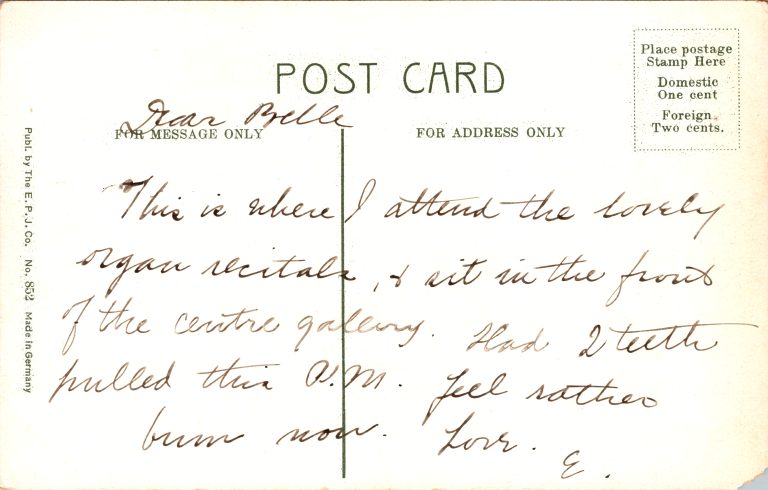 POST CARD
Place postage
Stamp Here
Domestic
One cent
Foreign
Two cents.
FOR MESSAGE ONLY
FOR ADDRESS ONLY
Dear Belle
This is where I attend the lovely
organ recitals, & sit in the front
of the centre gallery. Had 2 teeth
pulled this P.M. Feel rather
bum now. Love.
E.
Publ. by The E. P. J. Co. No. 852 Made in Germany